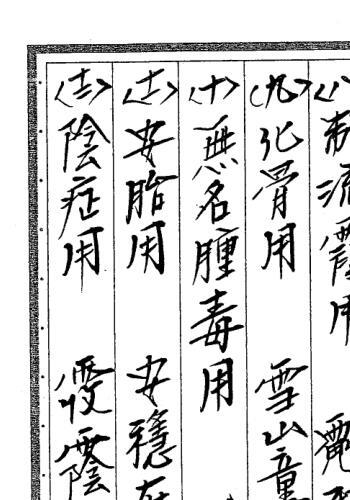 制流霞用
〈九〉化骨用 雪山童
〈十〉無名腫毒用
〈十一〉安胎用 安穩在
〈十二〉陰症用 陰